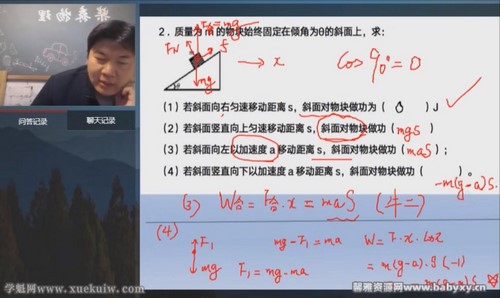 梁森物理
问答记录
聊天记录
2.质量为m的物块始终固定在倾角为θ的斜面上,求:
F合=mg
FN
f
mg
x
cos90°=0
(1)若斜面向右匀速移动距离s,斜面对物块做功为( 0 )J
(2)若斜面竖直向上匀速移动距离s,斜面对物块做功(mgS)
(3)若斜面向左以加速度a移动距离s,斜面对物块做功(maS);
(4)若斜面竖直向下以加速度a移动距离s,斜面对物块做功( )。
-m(g-a)S.
(3) W合=F合·x=maS (牛二)
(4)
F1
mg
mg-F1=ma
F1=mg-ma
W=F·x·cosα
=m(g-a)·S(-1)
=-m(g-a)S
学魁网www.xuekuiw.com
馨雅资源网www.babyxy.cn